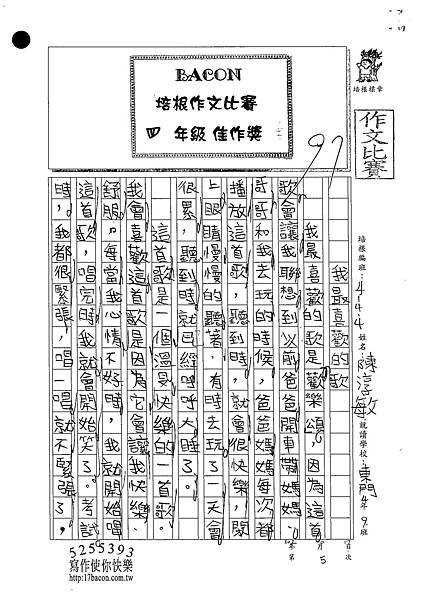 BACON
培根作文比賽
四 年級 佳作獎
97
培根標章
作文比賽
培根編班:4-144 姓名:陳淳敏 就讀學校:東門4年9班
我最喜歡的歌
我最喜歡的歌是歡樂頌。因為這首
歌會讓我聯想到以前爸爸開車帶媽媽、
哥哥和我去玩的時候,爸爸媽媽每次都
播放這首歌,聽到時,就會很快樂,閉
上眼睛慢慢的聽著,有時去玩了一天會
很累,聽到時就已經呼呼大睡了。
這首歌是一個溫具快樂的一首歌。
我會喜歡這首歌是因為它會讓我快樂、
舒服。每當我心情不好時,我就開始唱
這首歌,唱完時我就會開始笑了。考試
時,我都很緊張,唱一唱就不緊張了,
第 5 頁次
5255393
寫作使你快樂
http://17bacon.com.tw